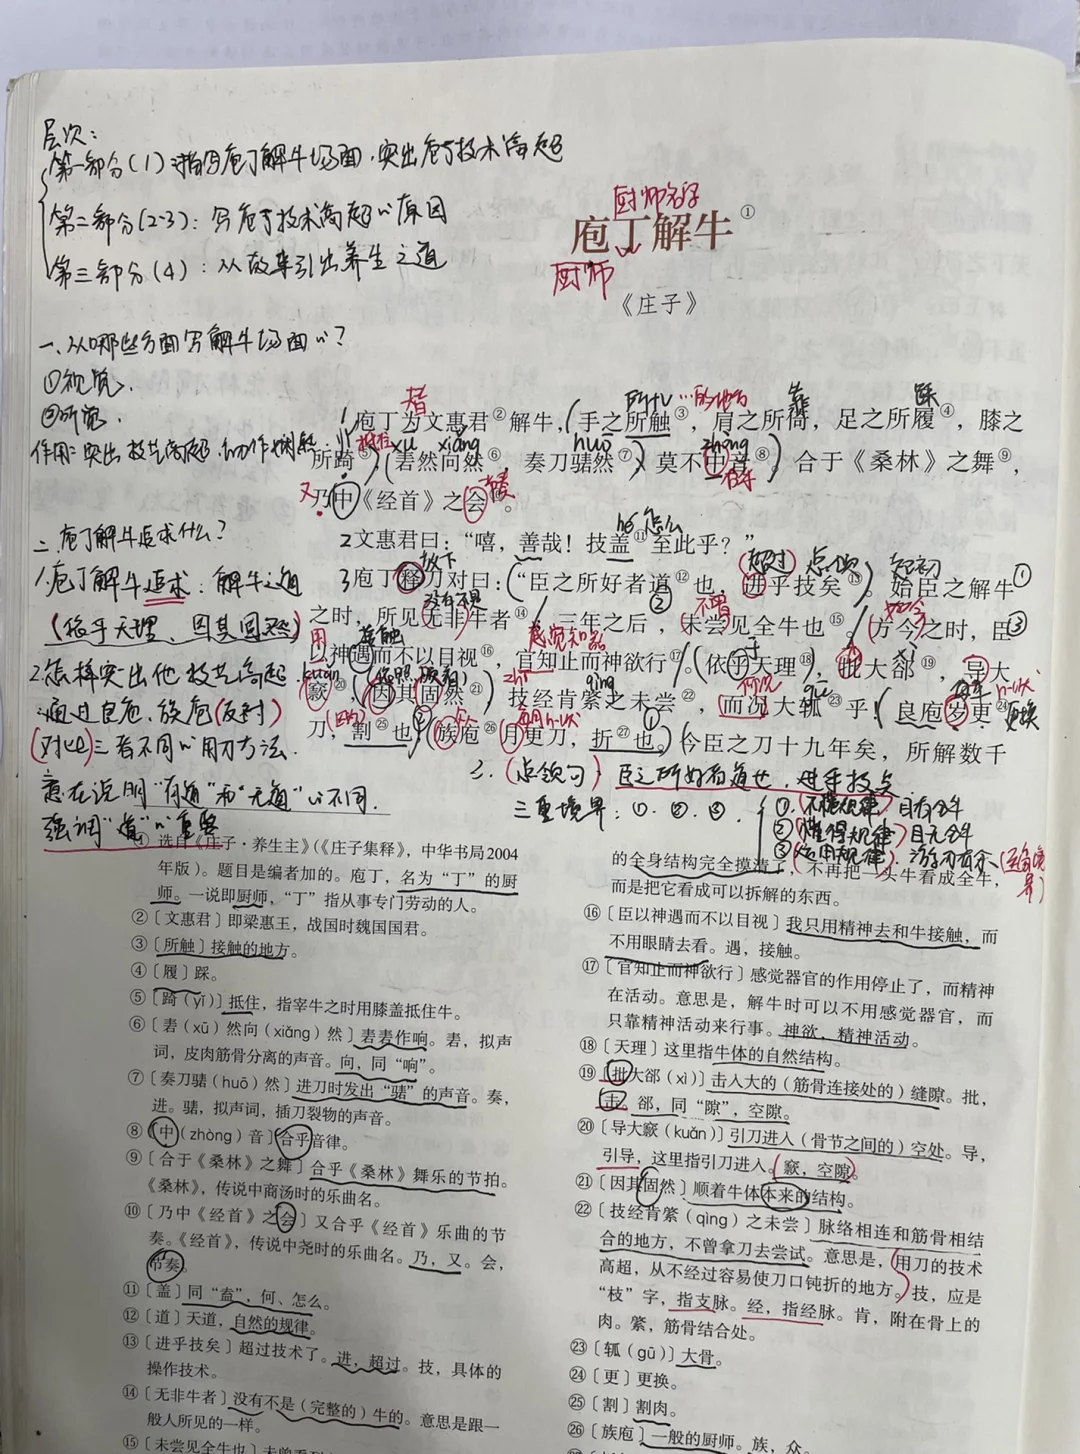 层次：
第一部分(1)：描写庖丁解牛场面，突出庖丁技术高超
第二部分(2-3)：写庖丁技术高超的原因
第三部分(4)：从故事引出养生之道
厨师名字
庖丁解牛①
厨师
《庄子》
一、从哪些方面写解牛场面的？
①视觉、
②听觉、
作用：突出技艺高超、动作娴熟
替 所以 …的地方 靠 踩
1 庖丁为文惠君②解牛，手之所触③，肩之所倚，足之所履④，膝之
抵住 xū xiǎng huō zhòng
所踦⑤，砉然向然⑥，奏刀騞然⑦，莫不中音⑧。合于《桑林》之舞⑨，
合乎
又 节奏
乃中《经首》之会⑩。
二、庖丁解牛追求什么？
hé 怎么
2 文惠君曰：“嘻，善哉！技盖⑪至此乎？”
放下 超过 点领 起初
1.庖丁解牛追求：解牛之道
3 庖丁释刀对曰：“臣之所好者道⑫也，进乎技矣⑬。始臣之解牛①
没有不是 ② 不曾 如今
之时，所见无非牛者⑭。三年之后，未尝见全牛也⑮。方今之时，臣③
(依乎天理、因其固然)
用 接触 感觉知觉 于 xì
以神遇而不以目视⑯，官知止而神欲行⑰。依乎天理⑱，批大郤⑲，导大
2.怎样突出他技艺高超
kuǎn 依照 qìng 何况 gū 每年
窾⑳，因其固然㉑，技经肯綮之未尝㉒，而况大軱㉓乎！良庖岁更㉔ 更换
:通过良庖、族庖(反衬)
刀，割㉕也；族庖㉖月更刀，折㉗也。今臣之刀十九年矣，所解数千
(对比)三者不同的用刀方法.
3.(点领句)臣之所好者道也，进乎技矣
意在说明“有道”和“无道”的不同.
三重境界：①.②.③.
①.(不懂规律)目有全牛
强调“道”的重要
②(懂得规律)目无全牛
③(运用规律)、游刃有余
① 选自《庄子·养生主》(《庄子集释》，中华书局2004
年版)。题目是编者加的。庖丁，名为“丁”的厨
师。一说即厨师，“丁”指从事专门劳动的人。
②〔文惠君〕即梁惠王，战国时魏国国君。
③〔所触〕接触的地方。
④〔履〕踩。
⑤〔踦(yǐ)〕抵住，指宰牛之时用膝盖抵住牛。
⑥〔砉(xū)然向(xiǎng)然〕砉砉作响。砉，拟声
词，皮肉筋骨分离的声音。向，同“响”。
⑦〔奏刀騞(huō)然〕进刀时发出“騞”的声音。奏，
进。騞，拟声词，插刀裂物的声音。
⑧〔中(zhòng)音〕合乎音律。
⑨〔合于《桑林》之舞〕合乎《桑林》舞乐的节拍。
《桑林》，传说中商汤时的乐曲名。
⑩〔乃中《经首》之会〕又合乎《经首》乐曲的节
奏。《经首》，传说中尧时的乐曲名。乃，又。会，
节奏。
⑪〔盖〕同“盍”，何、怎么。
⑫〔道〕天道，自然的规律。
⑬〔进乎技矣〕超过技术了。进，超过。技，具体的
操作技术。
⑭〔无非牛者〕没有不是(完整的)牛的。意思是跟一
般人所见的一样。
的全身结构完全摸清了，不再把一头牛看成全牛，
而是把它看成可以拆解的东西。
⑯〔臣以神遇而不以目视〕我只用精神去和牛接触，而
不用眼睛去看。遇，接触。
⑰〔官知止而神欲行〕感觉器官的作用停止了，而精神
在活动。意思是，解牛时可以不用感觉器官，而
只靠精神活动来行事。神欲，精神活动。
⑱〔天理〕这里指牛体的自然结构。
⑲〔批大郤(xì)〕击入大的(筋骨连接处的)缝隙。批，
击。郤，同“隙”，空隙。
⑳〔导大窾(kuǎn)〕引刀进入(骨节之间的)空处。导，
引导，这里指引刀进入。窾，空隙。
㉑〔因其固然〕顺着牛体本来的结构。
㉒〔技经肯綮(qìng)之未尝〕脉络相连和筋骨相结
合的地方，不曾拿刀去尝试。意思是，用刀的技术
高超，从不经过容易使刀口钝折的地方。技，应是
“枝”字，指支脉。经，指经脉。肯，附在骨上的
肉。綮，筋骨结合处。
㉓〔軱(gū)〕大骨。
㉔〔更〕更换。
㉕〔割〕割肉。
㉖〔族庖〕一般的厨师。族，众。